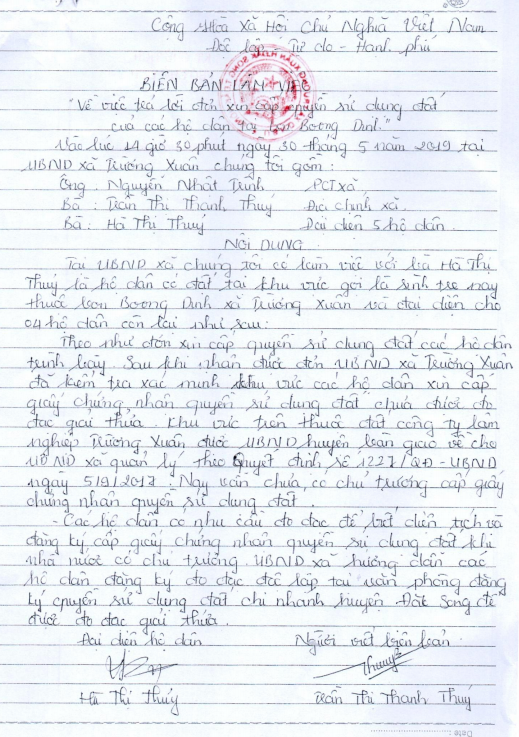 Cộng Hòa Xã Hội Chủ Nghĩa Việt Nam
Độc lập - Tự do - Hạnh phú
BIÊN BẢN LÀM VIỆ
"Về việc trả lời đơn xin cấp quyền sử dụng đất
của các hộ dân tại Boong Dinh."
Vào lúc 14 giờ 30 phút ngày 30 tháng 5 năm 2019 tại
UBND xã Trường Xuân chúng tôi gồm:
Ông : Nguyễn Nhất Trình PCT xã
Bà : Trần Thị Thanh Thuý Địa chính xã
Bà : Hà Thị Thuý Đại diện 5 hộ dân
NỘI DUNG
Tại UBND xã chúng tôi có làm việc với bà Hà Thị
Thuý là hộ dân có đất tại khu vực gọi là sình tre nay
thuộc bon Boong Dinh xã Trường Xuân và đại diện cho
04 hộ dân còn lại như sau:
Theo như đơn xin cấp quyền sử dụng đất các hộ dân
trình bày. Sau khi nhận được đơn UBND xã Trường Xuân
đã kiểm tra xác minh khu vực các hộ dân xin cấp
giấy chứng nhận quyền sử dụng đất chưa được đo
đạc giải thửa. Khu vực trên thuộc đất công ty lâm
nghiệp Trường Xuân được UBND huyện bàn giao về cho
UBND xã quản lý theo Quyết định số 1227/QĐ-UBND
ngày 5/9/2017. Nay vẫn chưa có chủ trương cấp giấy
chứng nhận quyền sử dụng đất.
- Các hộ dân có nhu cầu đo đạc để biết diện tích và
đăng ký cấp giấy chứng nhận quyền sử dụng đất khi
nhà nước có chủ trương. UBND xã hướng dẫn các
hộ dân đăng ký đo đạc độc lập tại văn phòng đăng
ký quyền sử dụng đất chi nhánh huyện Đăk Song để
được đo đạc giải thửa.
Đại diện hộ dân Người viết biên bản
Thuý
Hà Thị Thuý Trần Thị Thanh Thuý
Date